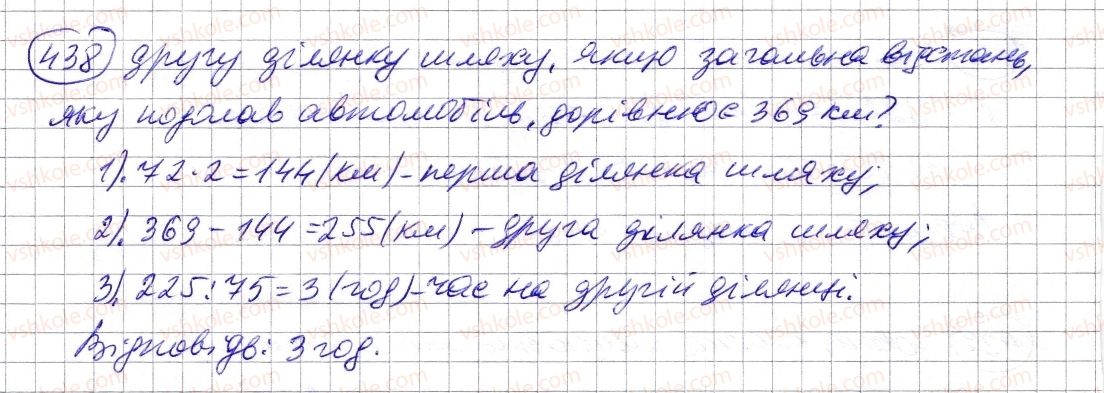 438 другу ділянку шляху, якщо загальна відстань,
яку подолав автомобіль, дорівнює 369 км?
1). 72·2=144(км)-перша ділянка шляху;
2). 369-144=255(км)-друга ділянка шляху;
3). 225:75=3(год)-час на другій ділянці.
Відповідь: 3 год.